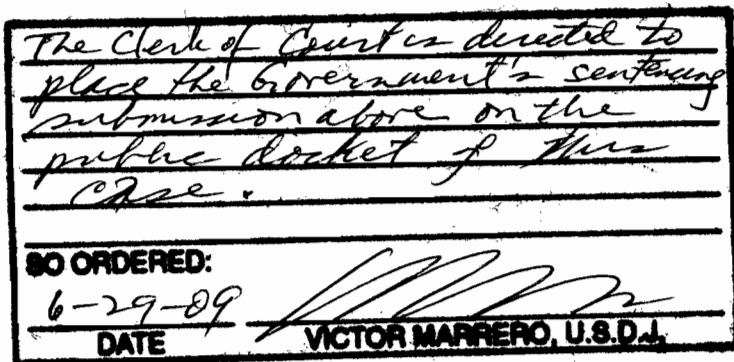 The Clerk of Court is directed to
place the Government's sentencing
submission above on the
public docket of this
case.
SO ORDERED:
6-29-09
DATE VICTOR MARRERO, U.S.D.J.